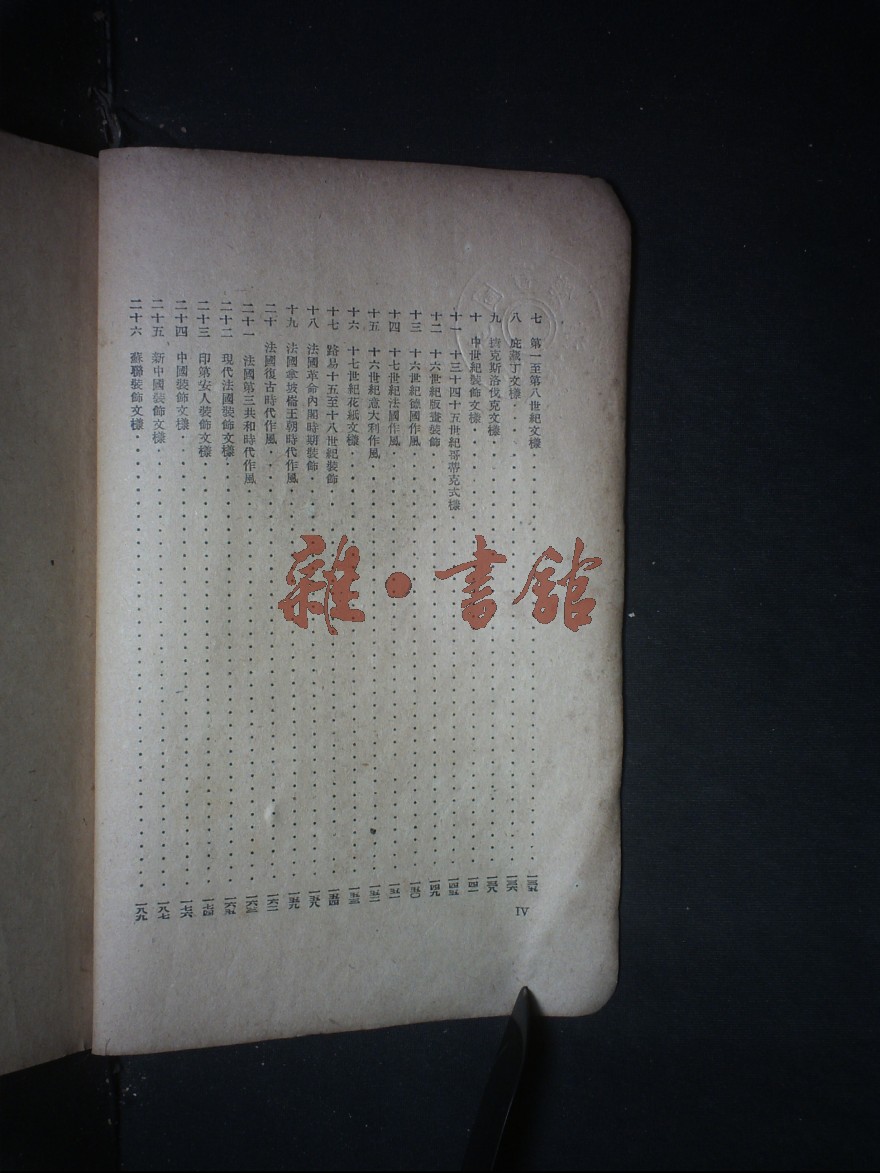 七　第一至第八世紀文樣 一三五
八　庇藏丁文樣 一三六
九　捷克斯洛伐克文樣 一三八
十　中世紀裝飾文樣 一四一
十一　十三十四十五世紀哥蒂克式樣 一四五
十二　十六世紀版畫裝飾 一四九
十三　十六世紀德國作風 一五〇
十四　十七世紀法國作風 一五一
十五　十六世紀意大利作風 一五二
十六　十七世紀花紙文樣 一五三
十七　路易十五至十八世紀裝飾 一五四
十八　法國革命內閣時期裝飾 一五八
十九　法國拿坡崙王朝時代作風 一五九
二十　法國復古時代作風 一六二
二十一　法國第三共和時代作風 一六三
二十二　現代法國裝飾文樣 一六五
二十三　印第安人裝飾文樣 一七四
二十四　中國裝飾文樣 一七六
二十五　新中國裝飾文樣 一八七
二十六　蘇聯裝飾文樣 一八九
IV
雜·書館